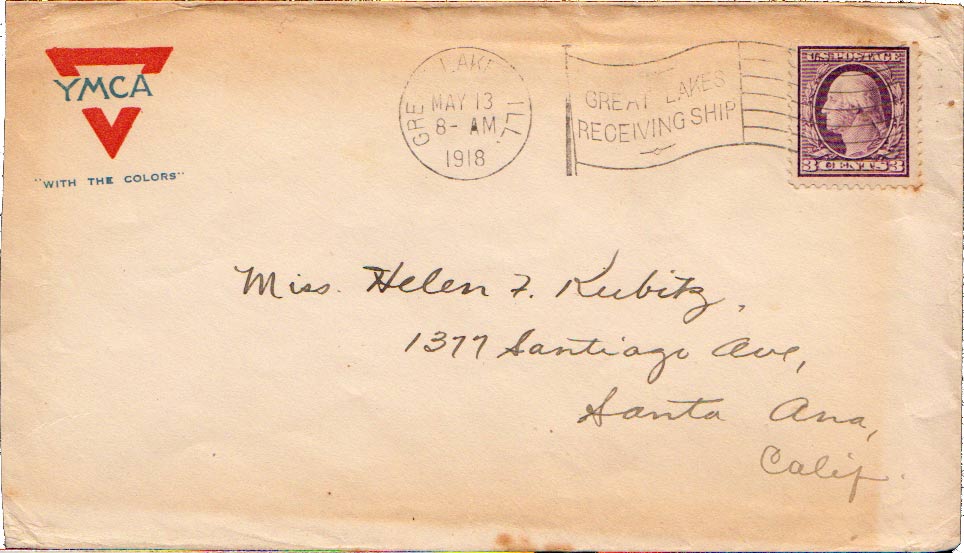 YMCA
"WITH THE COLORS"
GREAT LAKES ILL.
MAY 13
8- AM
1918
GREAT LAKES
RECEIVING SHIP
U.S. POSTAGE
3 CENTS 3
Miss. Helen F. Kubitz,
1377 Santiago Ave,
Santa Ana,
Calif.